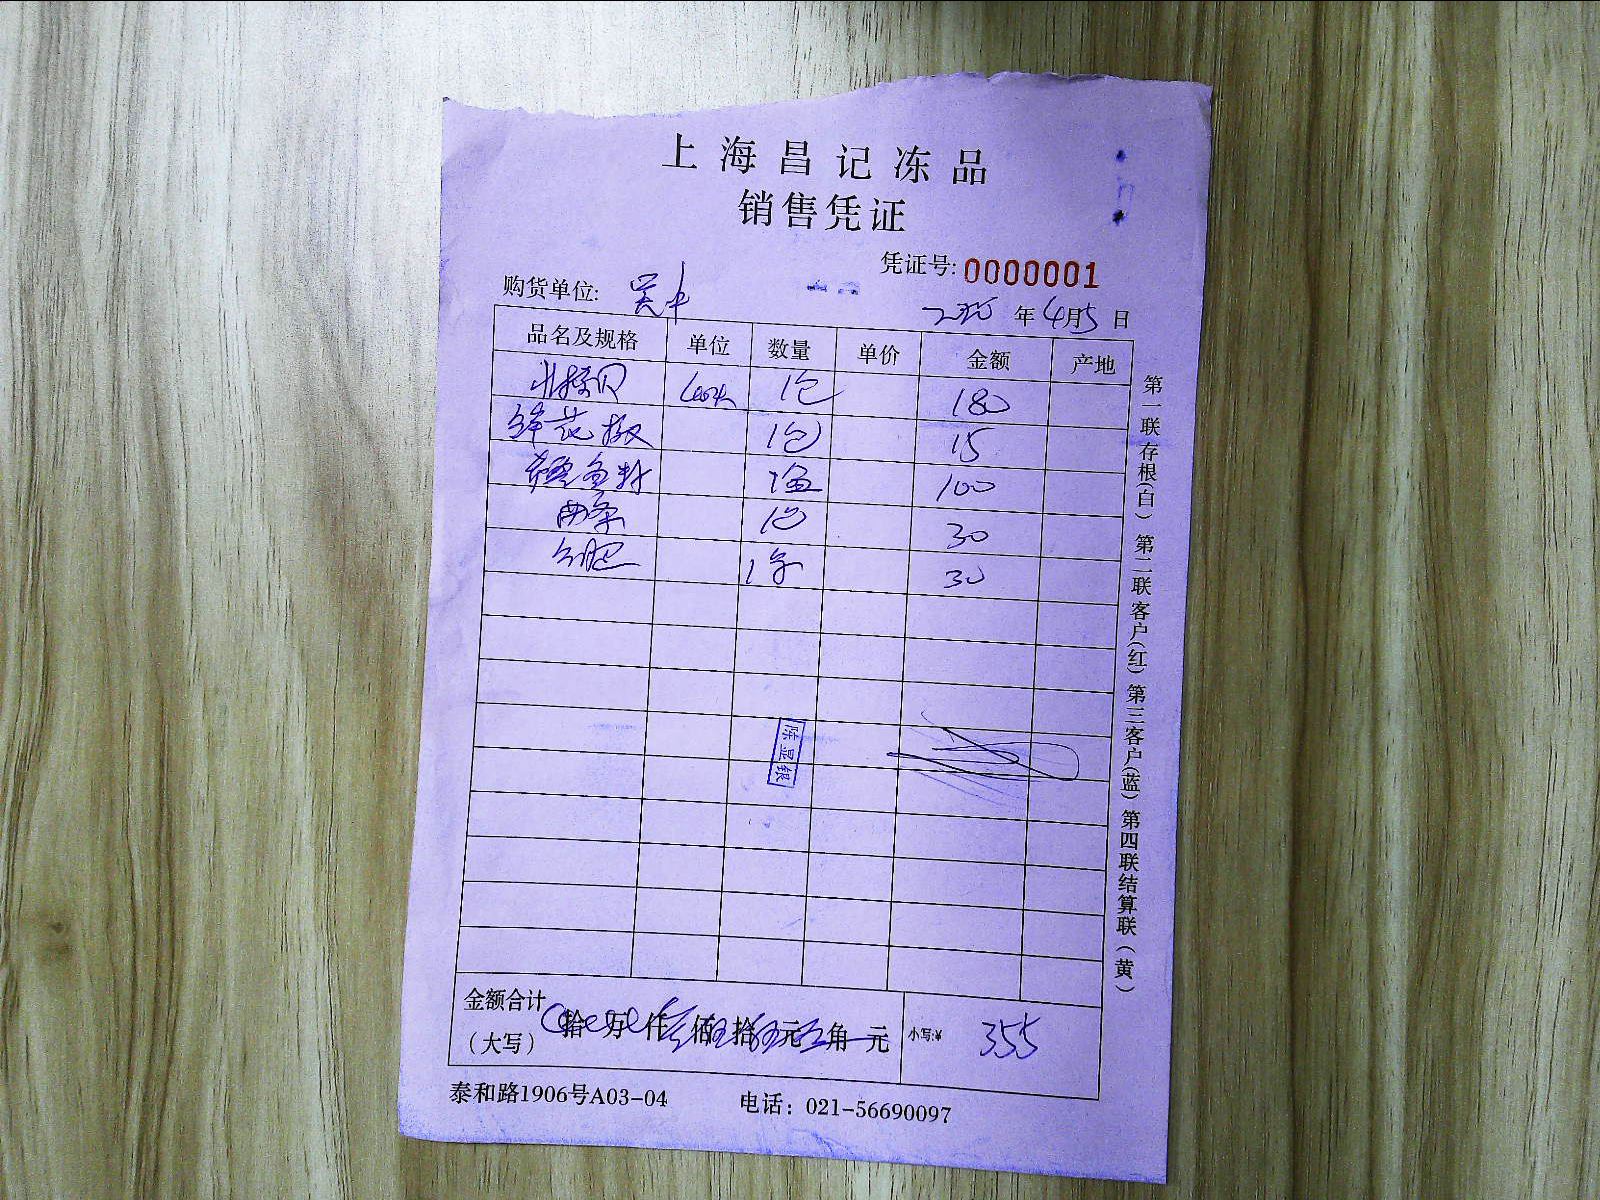 上海昌记冻品
销售凭证
凭证号: 0000001
购货单位: 吴中
年 4月5日
品名及规格 单位 数量 单价 金额 产地
北极贝 1包 180
鲜花椒 1包 15
鱼籽 1盒 100
1包 30
1条 30
陈显银
金额合计
(大写) 拾 万 仟 佰 拾 元 角 元 小写:¥ 355
泰和路1906号A03-04 电话：021-56690097
第一联存根(白) 第二联客户(红) 第三客户(蓝) 第四联结算联(黄)